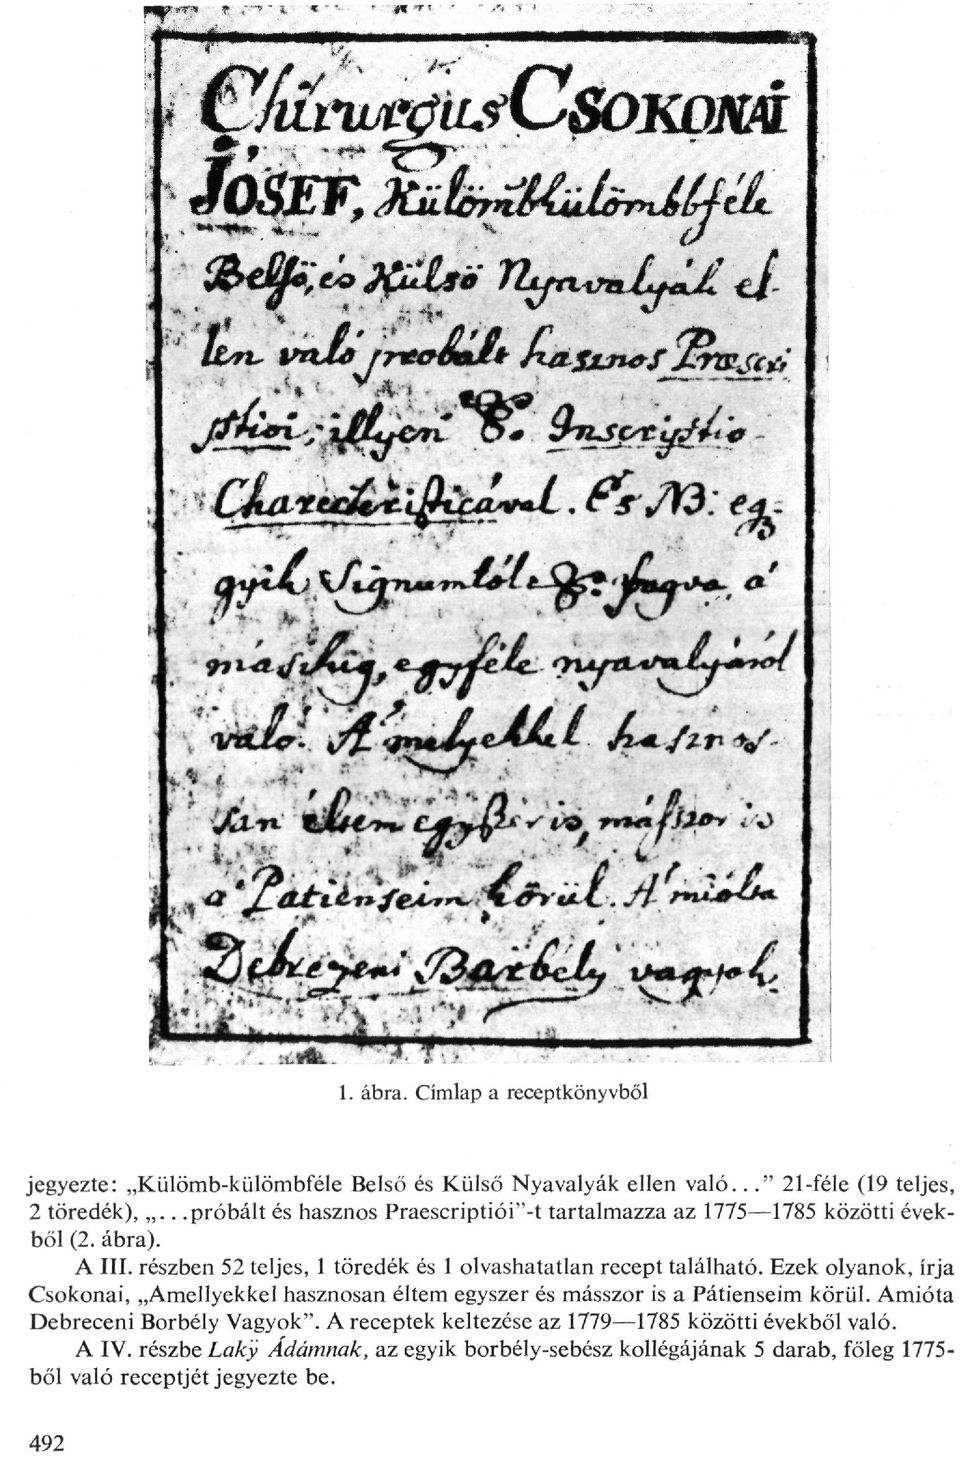 Chirurgus CSOKONAI
JÓSEF, Külömbkülömbféle
Belsö, és Külsö Nyavalyák el-
len való probált hasznos Præscri
ptioi; illyen Inscriptio
Charecteristicával. És NB: eg-
gyik Signumtól fogva a'
másikig, egyféle nyavalyáról
való. A' melyekkel hasznos-
san éltem egyszer is, másszor is
a' Patienseim körül. A' miólta
Debreczeni Barbély vagyok.
1. ábra. Címlap a receptkönyvből
jegyezte: „Külömb-külömbféle Belső és Külső Nyavalyák ellen való...” 21-féle (19 teljes,
2 töredék), „...próbált és hasznos Praescriptiói”-t tartalmazza az 1775—1785 közötti évek-
ből (2. ábra).
A III. részben 52 teljes, 1 töredék és 1 olvashatatlan recept található. Ezek olyanok, írja
Csokonai, „Amellyekkel hasznosan éltem egyszer és másszor is a Pátienseim körül. Amióta
Debreceni Borbély Vagyok”. A receptek keltezése az 1779—1785 közötti évekből való.
A IV. részbe Laky Ádámnak, az egyik borbély-sebész kollégájának 5 darab, főleg 1775-
ből való receptjét jegyezte be.
492